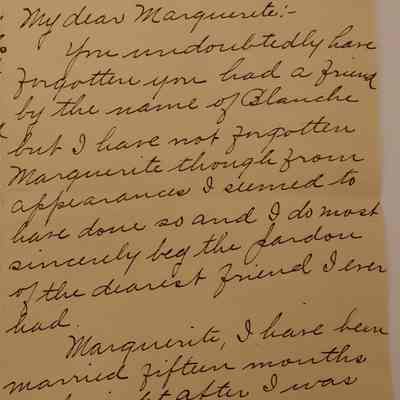 My dear Marguerite:-
You undoubtedly have
forgotten you had a friend
by the name of Blanche
but I have not forgotten
Marguerite though from
appearances I seemed to
have done so and I do most
sincerely beg the pardon
of the dearest friend I ever
had.
Marguerite, I have been
married fifteen months
after I was